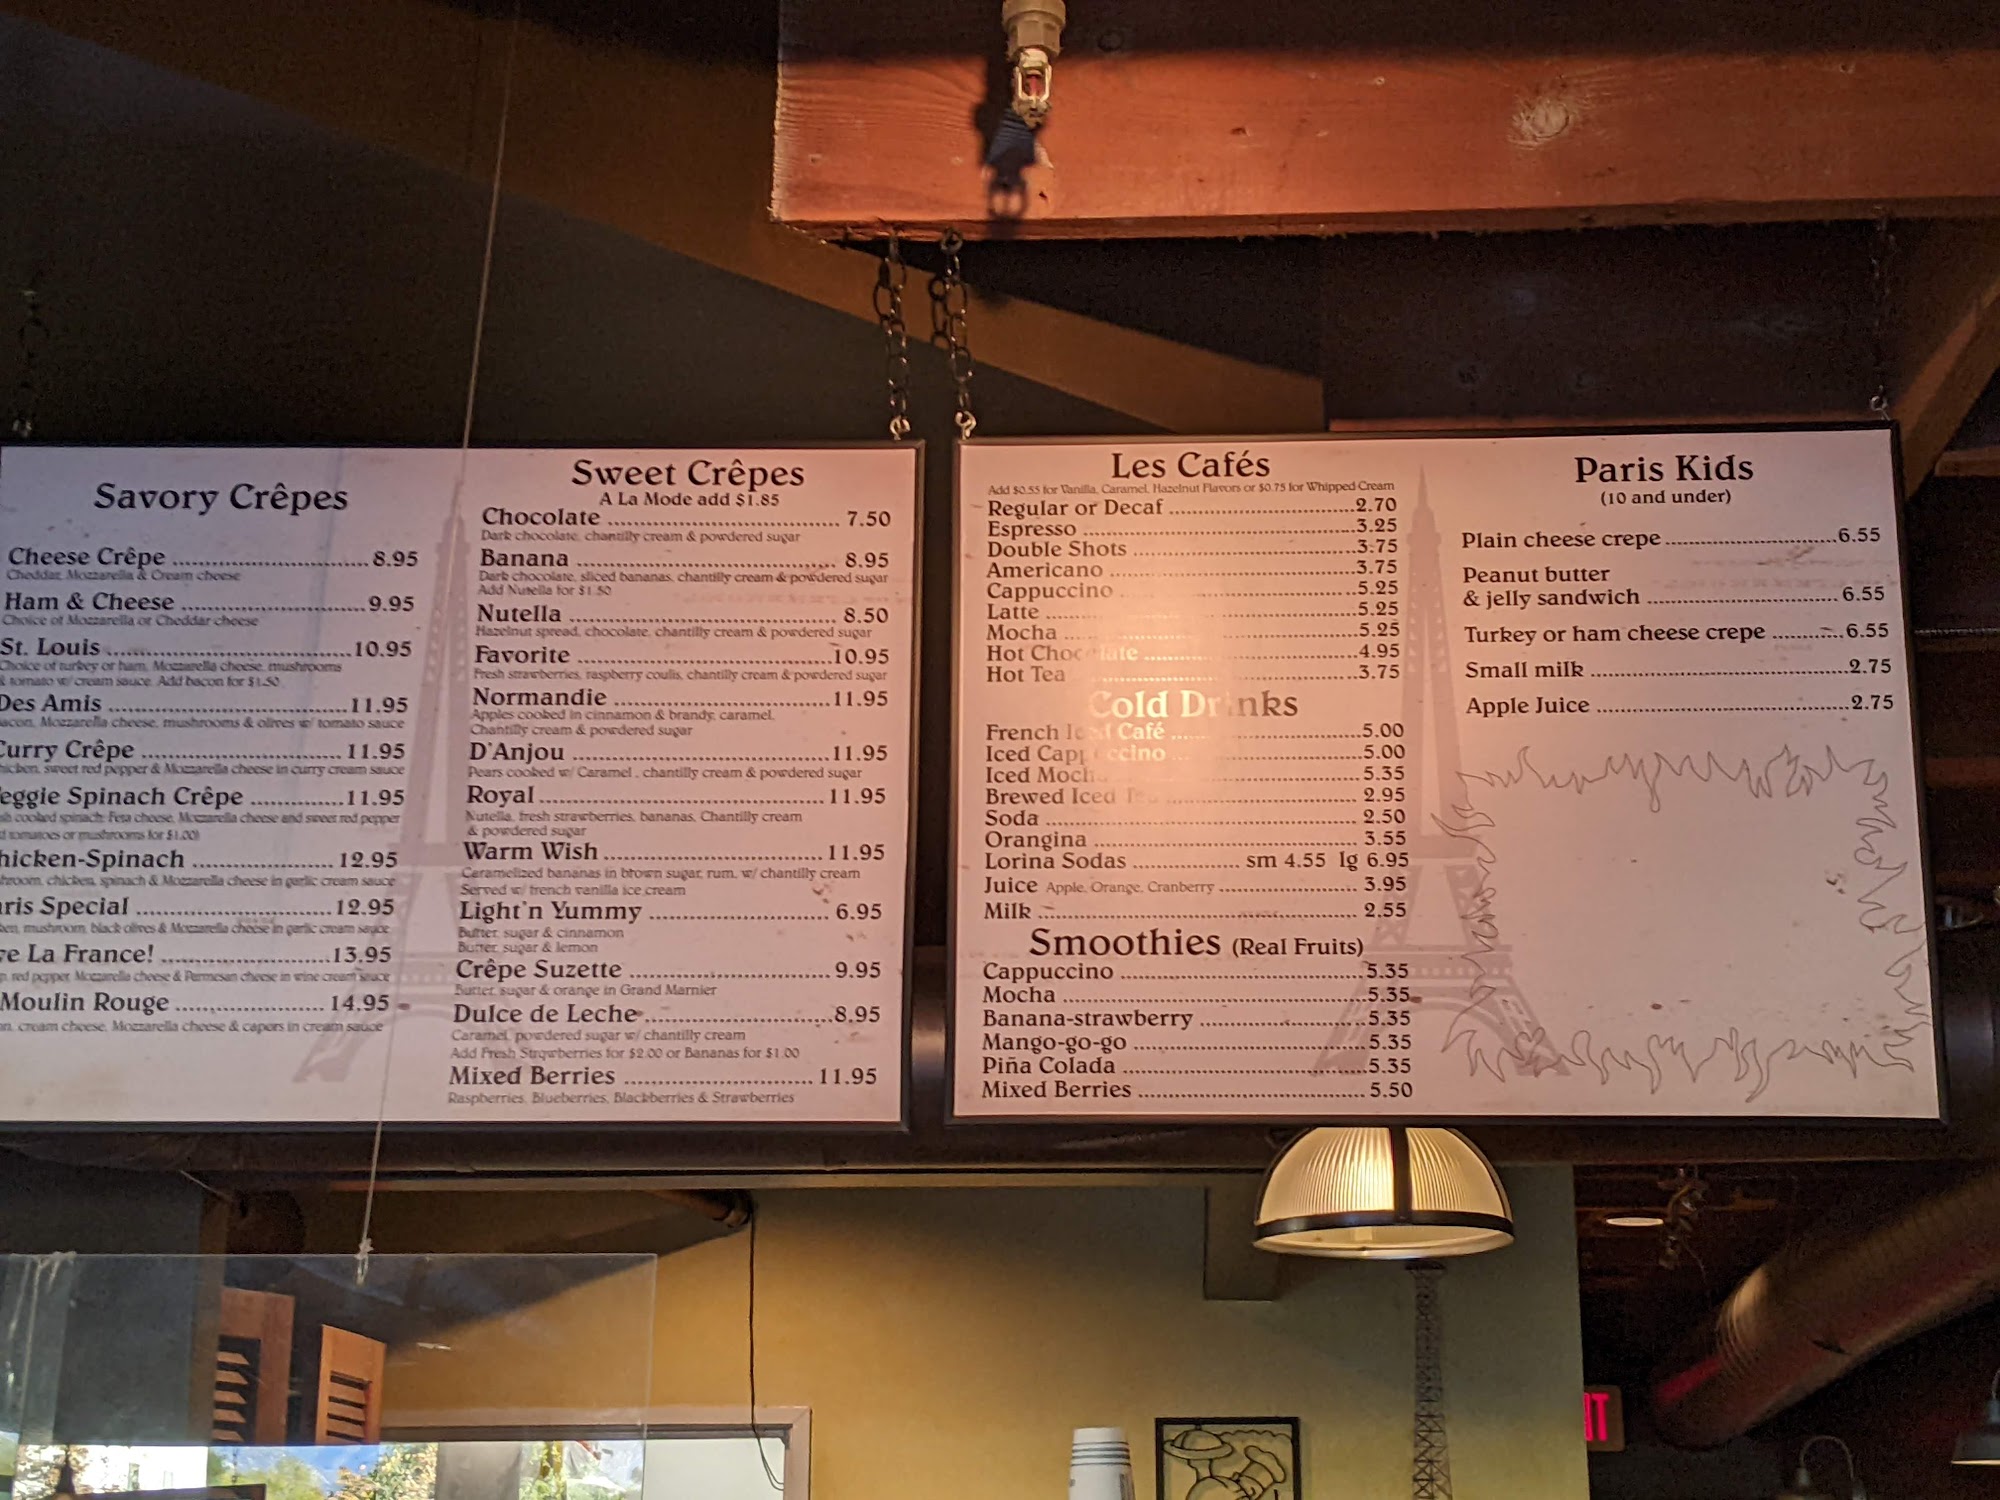 Savory Crêpes
Cheese Crêpe 8.95
Cheddar, Mozzarella & Cream cheese
Ham & Cheese 9.95
Choice of Mozzarella or Cheddar cheese
St. Louis 10.95
Choice of turkey or ham, Mozzarella cheese, mushrooms
& tomato w/ cream sauce. Add bacon for $1.50
Des Amis 11.95
Mozzarella cheese, mushrooms & olives w/ tomato sauce
Curry Crêpe 11.95
sweet red pepper & Mozzarella cheese in curry cream sauce
Spinach Crêpe 11.95
cooked spinach, Feta cheese, Mozzarella cheese and sweet red pepper
tomatoes or mushrooms for $1.00)
12.95
chicken, spinach & Mozzarella cheese in garlic cream sauce
Special 12.95
mushroom, black olives & Mozzarella cheese in garlic cream sauce
La France! 13.95
red pepper, Mozzarella cheese & Parmesan cheese in wine cream sauce
Moulin Rouge 14.95
cream cheese, Mozzarella cheese & capers in cream sauce
Sweet Crêpes
A La Mode add $1.85
Chocolate 7.50
Dark chocolate, chantilly cream & powdered sugar
Banana 8.95
Dark chocolate, sliced bananas, chantilly cream & powdered sugar
Add Nutella for $1.50
Nutella 8.50
Hazelnut spread, chocolate, chantilly cream & powdered sugar
Favorite 10.95
Fresh strawberries, raspberry coulis, chantilly cream & powdered sugar
Normandie 11.95
Apples cooked in cinnamon & brandy, caramel,
Chantilly cream & powdered sugar
D'Anjou 11.95
Pears cooked w/ Caramel , chantilly cream & powdered sugar
Royal 11.95
Nutella, fresh strawberries, bananas, Chantilly cream
& powdered sugar
Warm Wish 11.95
Caramelized bananas in brown sugar, rum, w/ chantilly cream
Served w/ french vanilla ice cream
Light'n Yummy 6.95
Butter, sugar & cinnamon
Butter, sugar & lemon
Crêpe Suzette 9.95
Butter, sugar & orange in Grand Marnier
Dulce de Leche 8.95
Caramel, powdered sugar w/ chantilly cream
Add Fresh Strawberries for $2.00 or Bananas for $1.00
Mixed Berries 11.95
Raspberries, Blueberries, Blackberries & Strawberries
Les Cafés
Add $0.55 for Vanilla, Caramel, Hazelnut Flavors or $0.75 for Whipped Cream
Regular or Decaf 2.70
Espresso 3.25
Double Shots 3.75
Americano 3.75
Cappuccino 5.25
Latte 5.25
Mocha 5.25
Hot Chocolate 4.95
Hot Tea 3.75
Cold Drinks
French Iced Café 5.00
Iced Cappuccino 5.00
Iced Mocha 5.35
Brewed Iced Tea 2.95
Soda 2.50
Orangina 3.55
Lorina Sodas sm 4.55 lg 6.95
Juice Apple, Orange, Cranberry 3.95
Milk 2.55
Smoothies (Real Fruits)
Cappuccino 5.35
Mocha 5.35
Banana-strawberry 5.35
Mango-go-go 5.35
Piña Colada 5.35
Mixed Berries 5.50
Paris Kids
(10 and under)
Plain cheese crepe 6.55
Peanut butter
& jelly sandwich 6.55
Turkey or ham cheese crepe 6.55
Small milk 2.75
Apple Juice 2.75